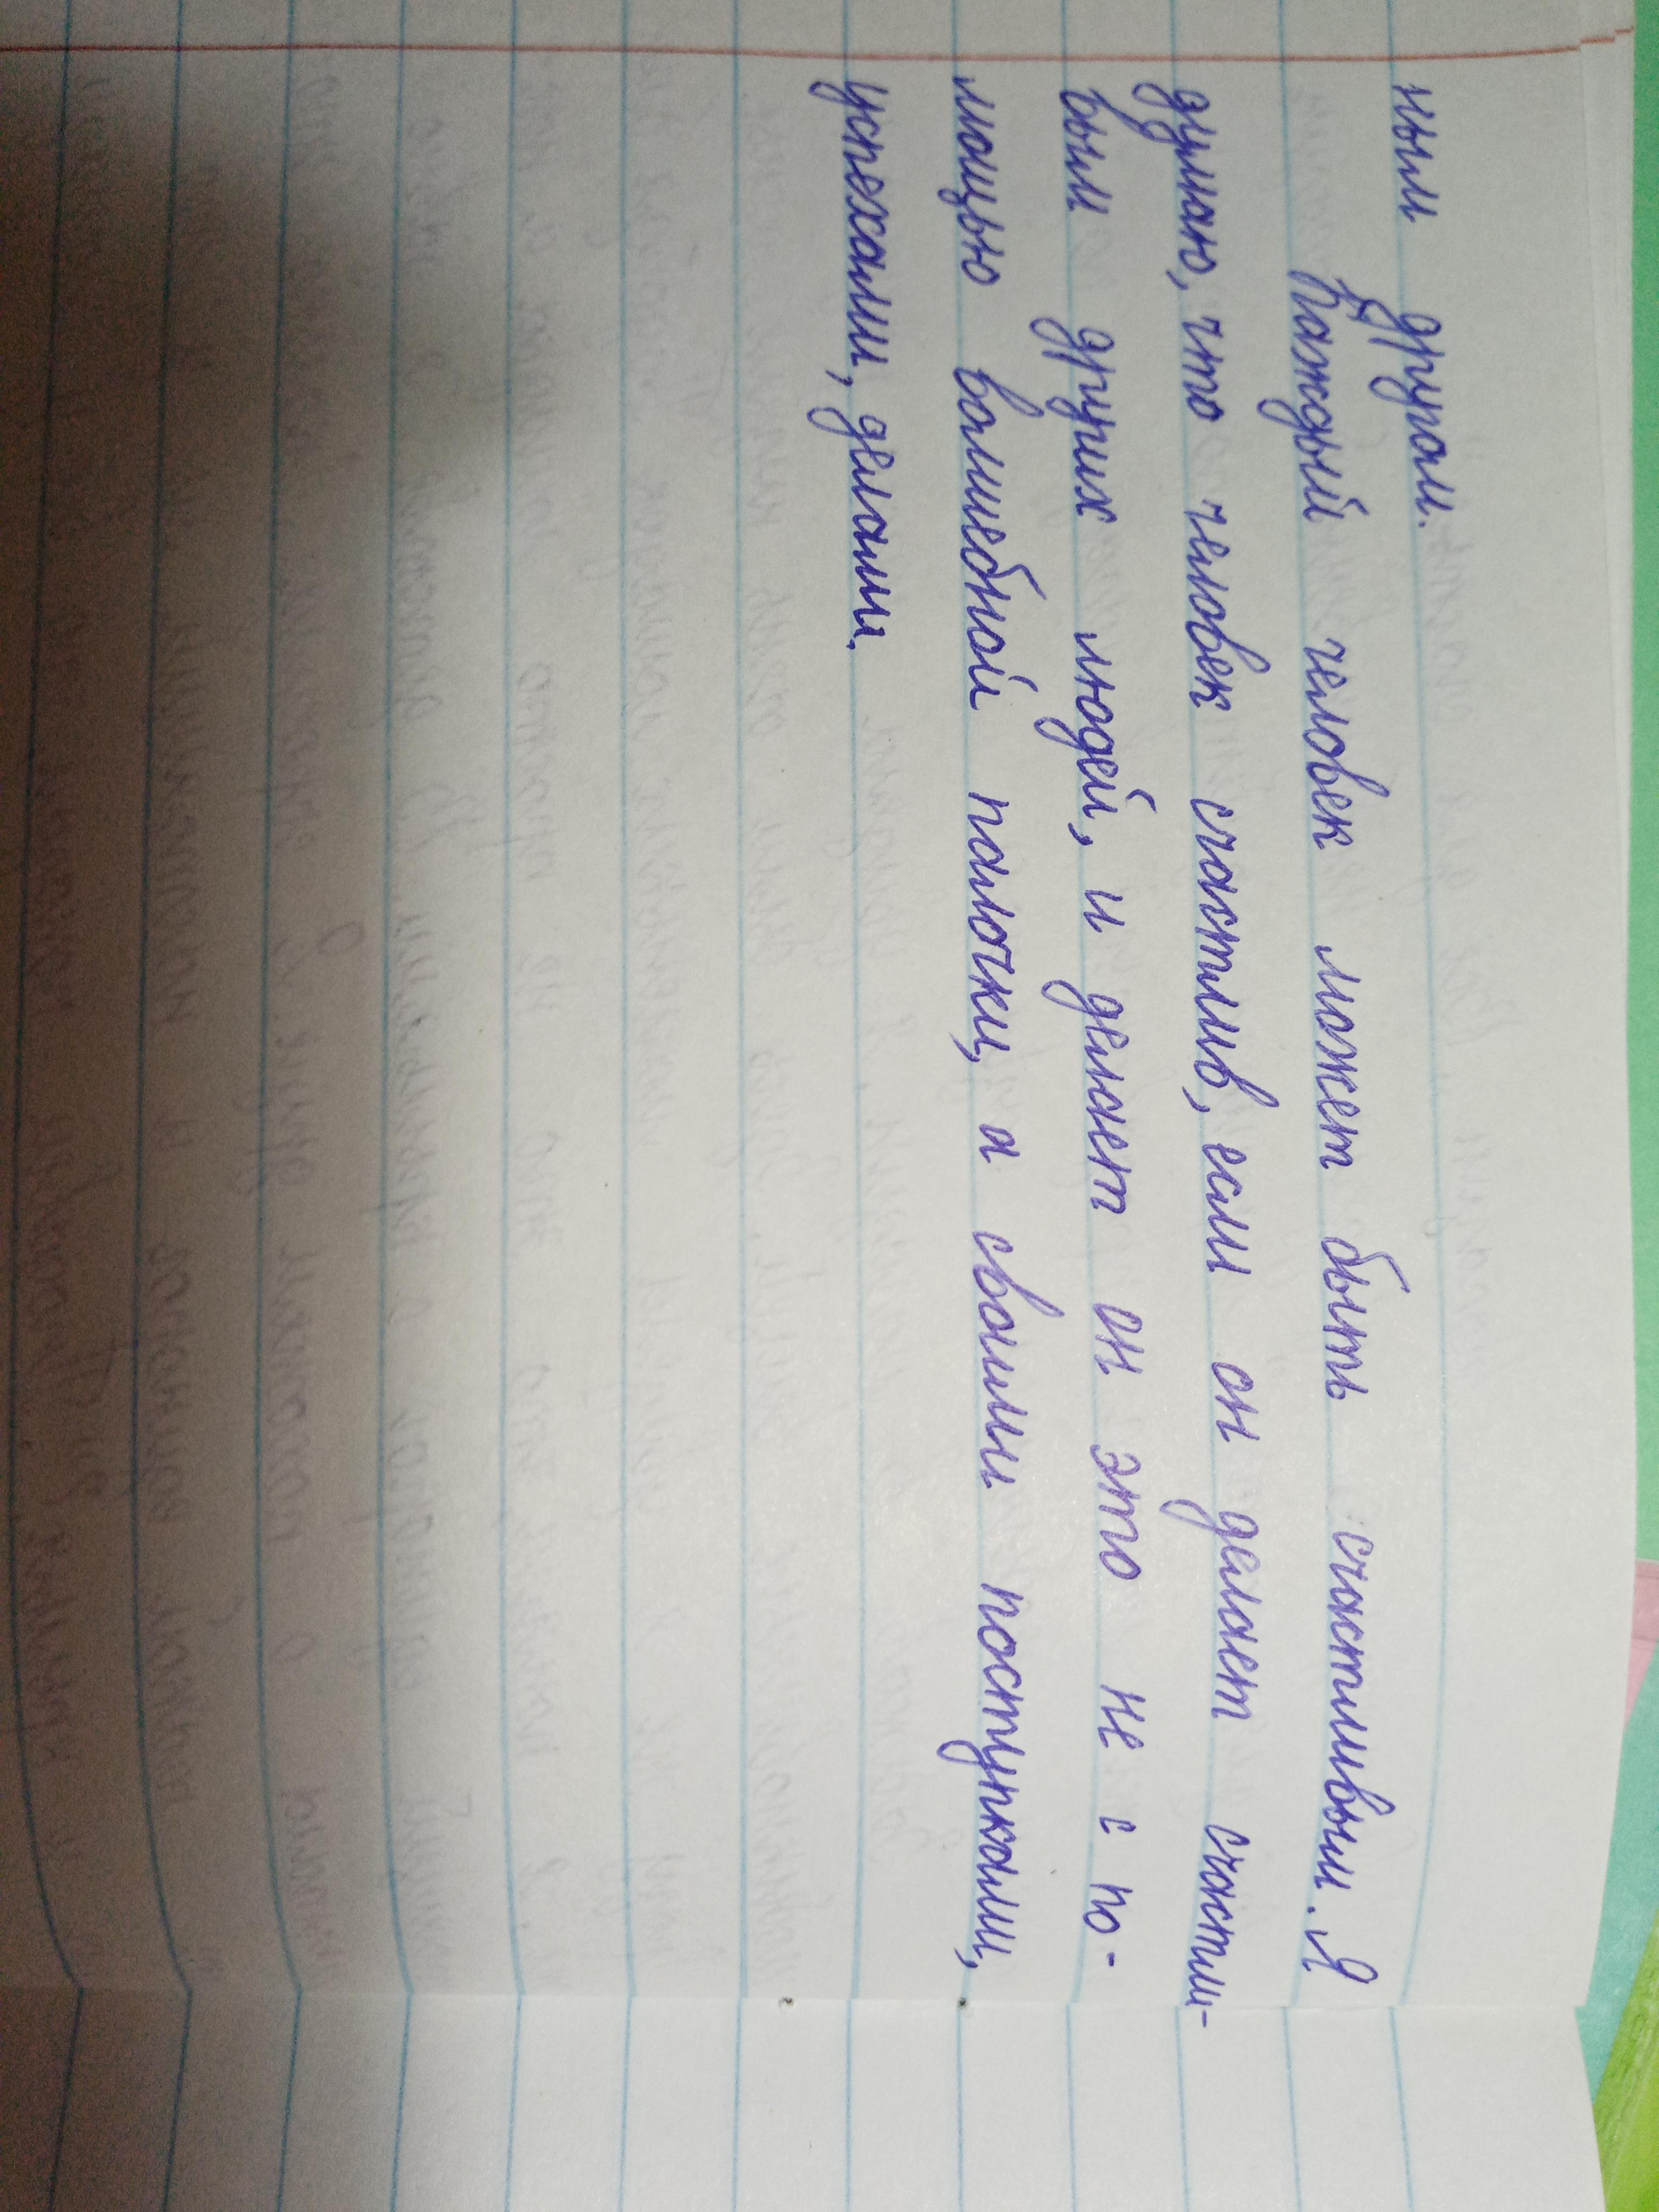 ным другом.
Каждый человек может быть счастливым. Я
думаю, что человек счастлив, если он делает счастли-
вым других людей, и делает он это не с по-
мощью волшебной палочки, а своими поступками,
успехами, делами.